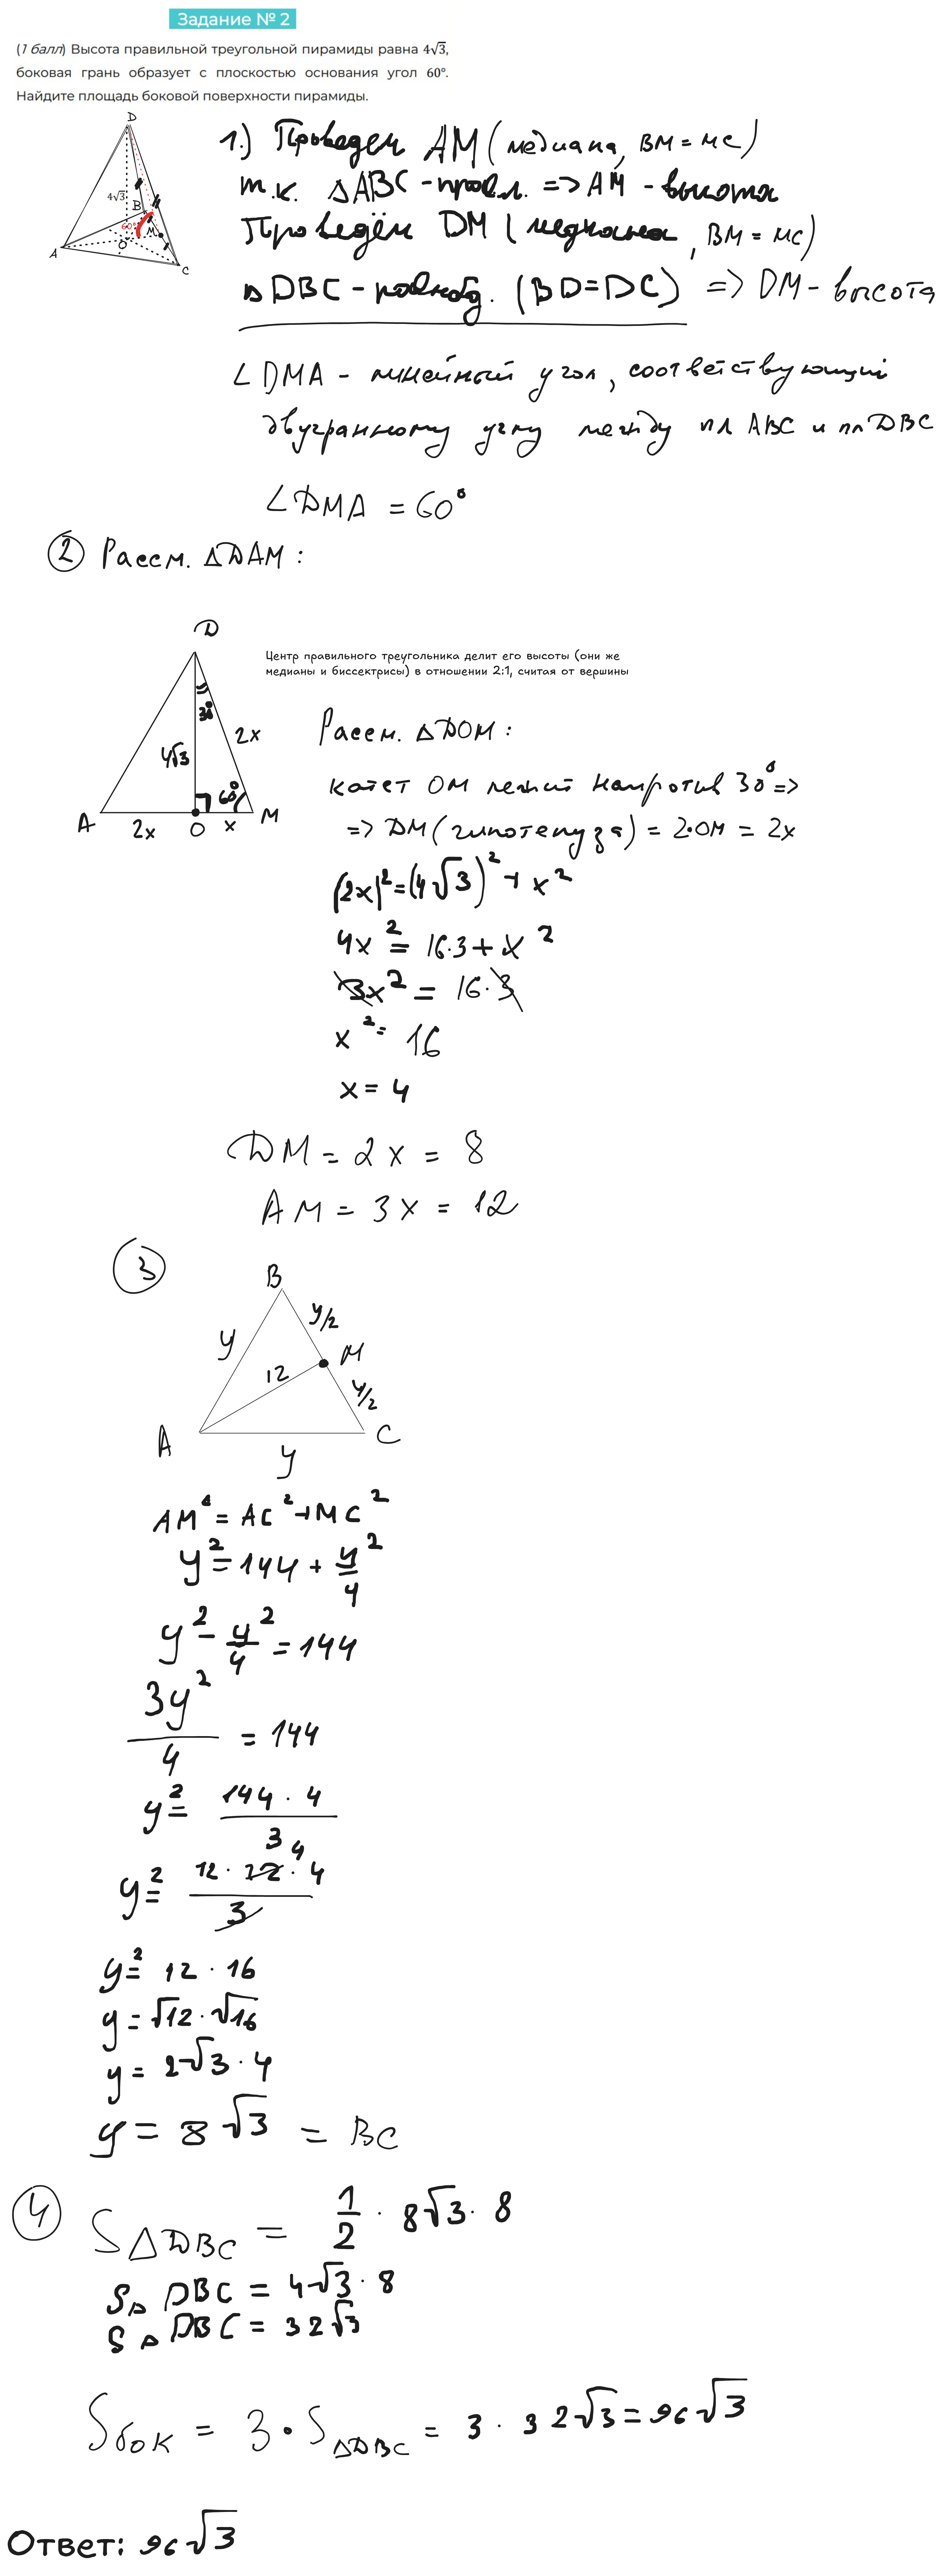 Задание № 2
(1 балл) Высота правильной треугольной пирамиды равна 4√3,
боковая грань образует с плоскостью основания угол 60°.
Найдите площадь боковой поверхности пирамиды.
D
4√3
B
60°
M
O
A
C
1.) Проведём AM (медиана, BM = MC)
т.к. △ABC - прав. => AM - высота
Проведём DM (медиана, BM = MC)
△DBC - равноб. (BD=DC) => DM - высота
∠DMA - линейный угол, соответствующий
двугранному углу между пл ABC и пл DBC
∠DMA = 60°
2 Рассм. △DAM :
D
Центр правильного треугольника делит его высоты (они же
медианы и биссектрисы) в отношении 2:1, считая от вершины
30°
2x
4√3
60°
A
2x
O
x
M
Рассм. △DOM :
катет OM лежит напротив 30° =>
=> DM (гипотенуза) = 2·OM = 2x
(2x)² = (4√3)² + x²
4x² = 16·3 + x²
3x² = 16·3
x² = 16
x = 4
DM = 2x = 8
AM = 3x = 12
3
B
y
y/2
12
M
y/2
A
C
y
AM² = AC² + MC²
y² = 144 + y²/4
y² - y²/4 = 144
3y²/4 = 144
y² = 144 · 4 / 3
y² = 12 · 12 4 · 4 / 3
y² = 12 · 16
y = √12 · √16
y = 2√3 · 4
y = 8√3 = BC
4 S△DBC = 1/2 · 8√3 · 8
S△DBC = 4√3 · 8
S△DBC = 32√3
Sбок = 3 · S△DBC = 3 · 32√3 = 96√3
Ответ: 96√3